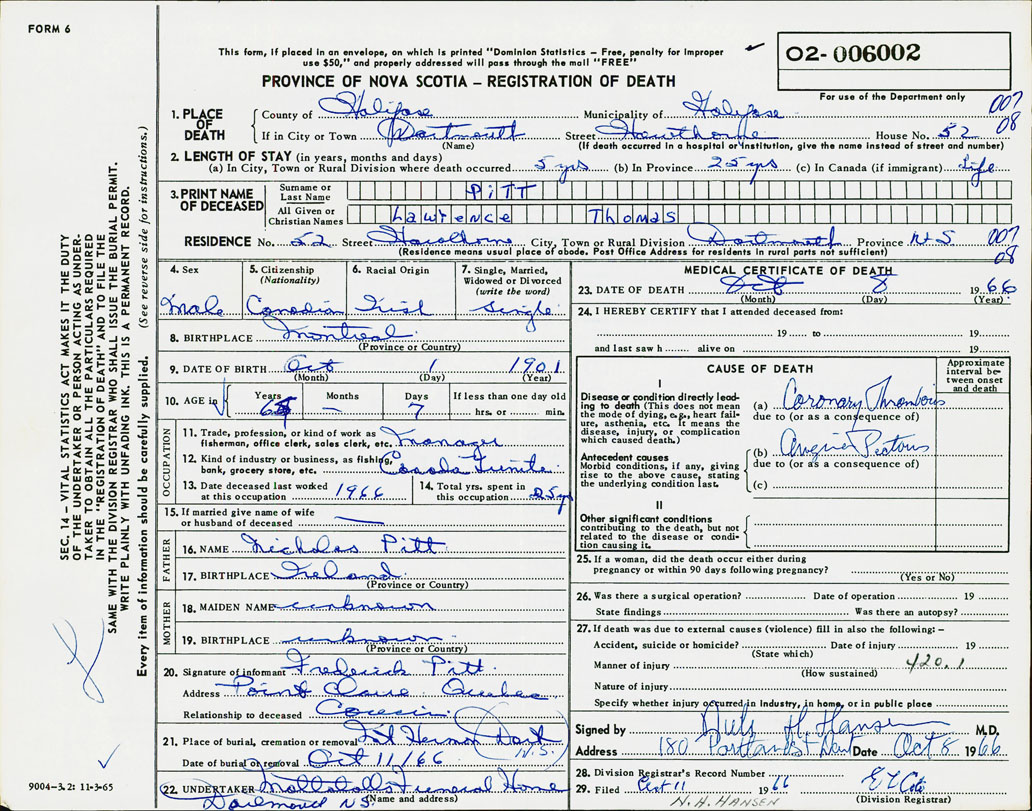 FORM 6
This form, if placed in an envelope, on which is printed "Dominion Statistics – Free, penalty for improper
use $50," and properly addressed will pass through the mail "FREE"
PROVINCE OF NOVA SCOTIA – REGISTRATION OF DEATH
02-006002
For use of the Department only
007
08
1. PLACE OF DEATH
County of Halifax Municipality of Halifax
If in City or Town Dartmouth Street Hawthorne House No. 52
(Name) (If death occurred in a hospital or institution, give the name instead of street and number)
2. LENGTH OF STAY (in years, months and days)
(a) In City, Town or Rural Division where death occurred 5 yrs (b) In Province 25 yrs (c) In Canada (if immigrant) Life
3. PRINT NAME OF DECEASED
Surname or Last Name PITT
All Given or Christian Names Lawrence Thomas
RESIDENCE No. 52 Street Hawthorne City, Town or Rural Division Dartmouth Province N.S. 007
(Residence means usual place of abode. Post Office Address for residents in rural parts not sufficient) 08
4. Sex Male
5. Citizenship (Nationality) Canadian
6. Racial Origin Irish
7. Single, Married, Widowed or Divorced (write the word) Single
8. BIRTHPLACE Montreal
(Province or Country)
9. DATE OF BIRTH Oct 1 1901
(Month) (Day) (Year)
10. AGE in Years Months — Days 7 If less than one day old
hrs. or min.
OCCUPATION
11. Trade, profession, or kind of work as
fisherman, office clerk, sales clerk, etc. Manager
12. Kind of industry or business, as fishing,
bank, grocery store, etc. Canada
13. Date deceased last worked
at this occupation 1966
14. Total yrs. spent in
this occupation 25 yrs
15. If married give name of wife
or husband of deceased —
FATHER
16. NAME Nicholas Pitt
17. BIRTHPLACE Ireland
(Province or Country)
MOTHER
18. MAIDEN NAME unknown
19. BIRTHPLACE unknown
(Province or Country)
20. Signature of informant Frederick Pitt
Address Point Claire Quebec
Relationship to deceased Cousin
21. Place of burial, cremation or removal Mt Hermon Dart N.S.
Date of burial or removal Oct 11/66
22. UNDERTAKER Mattatalls Funeral Home
Dartmouth N.S. (Name and address)
MEDICAL CERTIFICATE OF DEATH
23. DATE OF DEATH Oct 8 1966
(Month) (Day) (Year)
24. I HEREBY CERTIFY that I attended deceased from:
19 to 19
and last saw h alive on 19
CAUSE OF DEATH
Approximate interval between onset and death
I
Disease or condition directly lead-
ing to death (This does not mean
the mode of dying, e.g., heart fail-
ure, asthenia, etc. It means the
disease, injury, or complication
which caused death.)
(a) Coronary Thrombosis
due to (or as a consequence of)
Antecedent causes
Morbid conditions, if any, giving
rise to the above cause, stating
the underlying condition last.
(b) Angina Pectoris
due to (or as a consequence of)
(c)
II
Other significant conditions
contributing to the death, but not
related to the disease or condi-
tion causing it.
25. If a woman, did the death occur either during
pregnancy or within 90 days following pregnancy?
(Yes or No)
26. Was there a surgical operation? Date of operation 19
State findings Was there an autopsy?
27. If death was due to external causes (violence) fill in also the following:–
Accident, suicide or homicide? Date of injury 19
(State which)
Manner of injury 420.1
(How sustained)
Nature of injury
Specify whether injury occurred in industry, in home, or in public place
Signed by H. Hansen M.D.
Address 180 Portland St Dart Date Oct 8 1966
28. Division Registrar's Record Number
29. Filed Oct 11 1966
(Division Registrar)
N. H. HANSEN
SEC. 14 – VITAL STATISTICS ACT MAKES IT THE DUTY
OF THE UNDERTAKER OR PERSON ACTING AS UNDER-
TAKER TO OBTAIN ALL THE PARTICULARS REQUIRED
IN THE "REGISTRATION OF DEATH" AND TO FILE THE
SAME WITH THE DIVISION REGISTRAR WHO SHALL ISSUE THE BURIAL PERMIT.
WRITE PLAINLY WITH UNFADING INK. THIS IS A PERMANENT RECORD.
Every item of information should be carefully supplied. (See reverse side for instructions.)
9004-3.2: 11-3-65